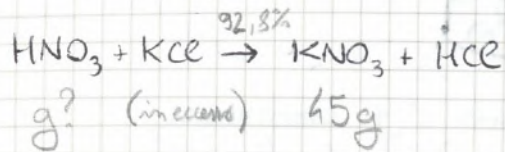 92,8%
HNO₃ + KCl → KNO₃ + HCl
g? (in eccesso) 45g